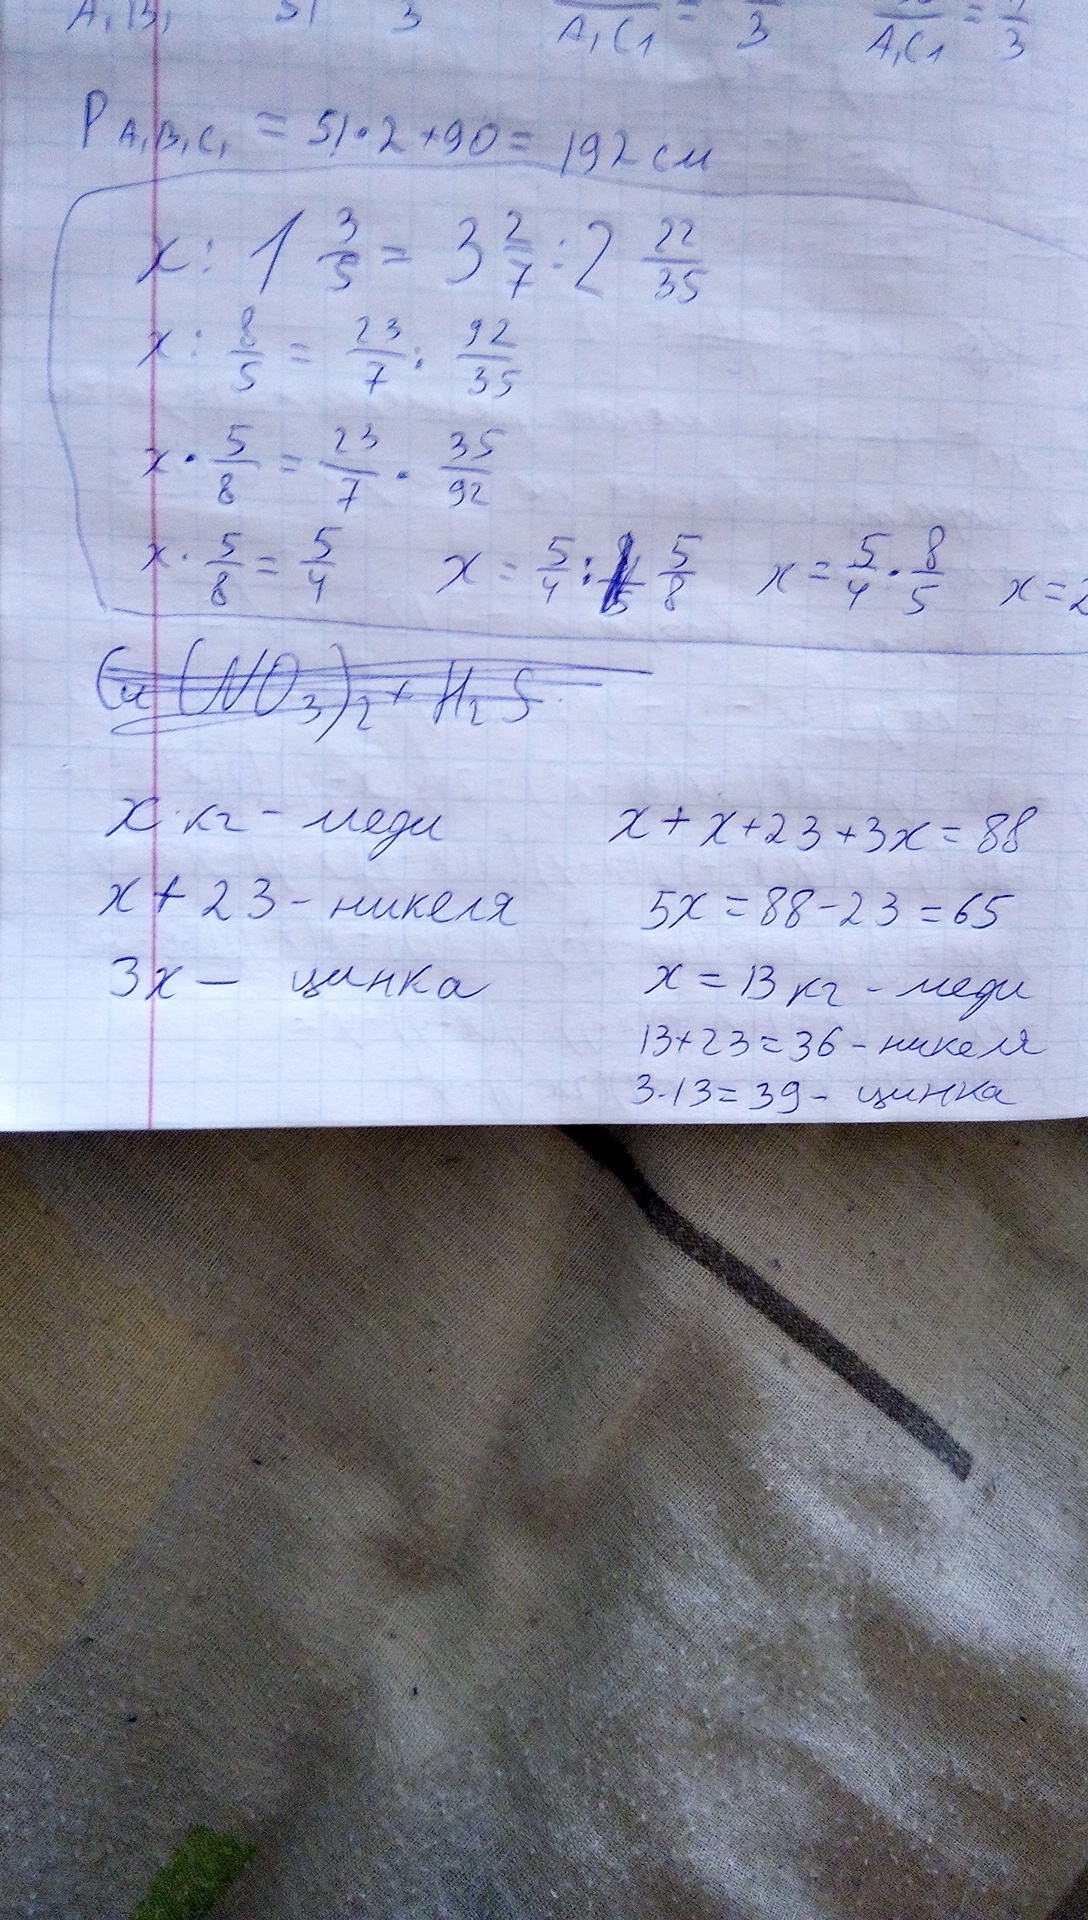 A₁B₁ 51 3 A₁C₁ = 3 A₁C₁ = 3
P A₁B₁C₁ = 51·2+90 = 192 см
x : 1 3/5 = 3 2/7 : 2 22/35
x : 8/5 = 23/7 : 92/35
x · 5/8 = 23/7 · 35/92
x · 5/8 = 5/4 x = 5/4 : 5/8 x = 5/4 · 8/5 x = 2
Cu(NO₃)₂ + H₂S
x кг - меди
x + 23 - никеля
3x — цинка
x + x + 23 + 3x = 88
5x = 88 - 23 = 65
x = 13 кг - меди
13+23=36 - никеля
3·13=39 - цинка